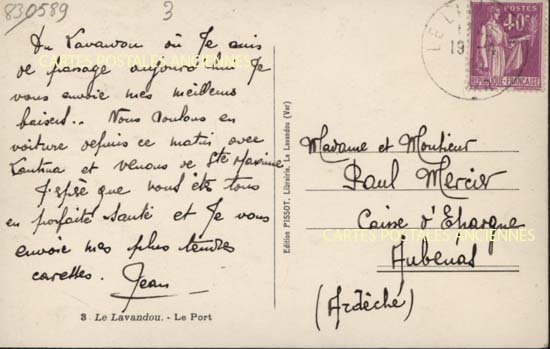 830589
3
Du Lavandou où Je suis
de passage aujourd'hui Je
vous envoie mes meilleurs
baisers.. Nous roulons en
voiture depuis ce matin avec
et venons de Ste Maxime
J'espère que vous êtes tous
en parfaite santé et Je vous
envoie mes plus tendres
caresses. Jean
3 Le Lavandou. - Le Port
Edition PISSOT, Librairie, Le Lavandou (Var)
LE L
19
POSTES
40c
REPUBLIQUE FRANÇAISE
Madame et Monsieur
Paul Mercier
Caisse d'Epargne
Aubenas
(Ardèche)
CARTES POSTALES ANCIENNES
CARTES POSTALES ANCIENNES